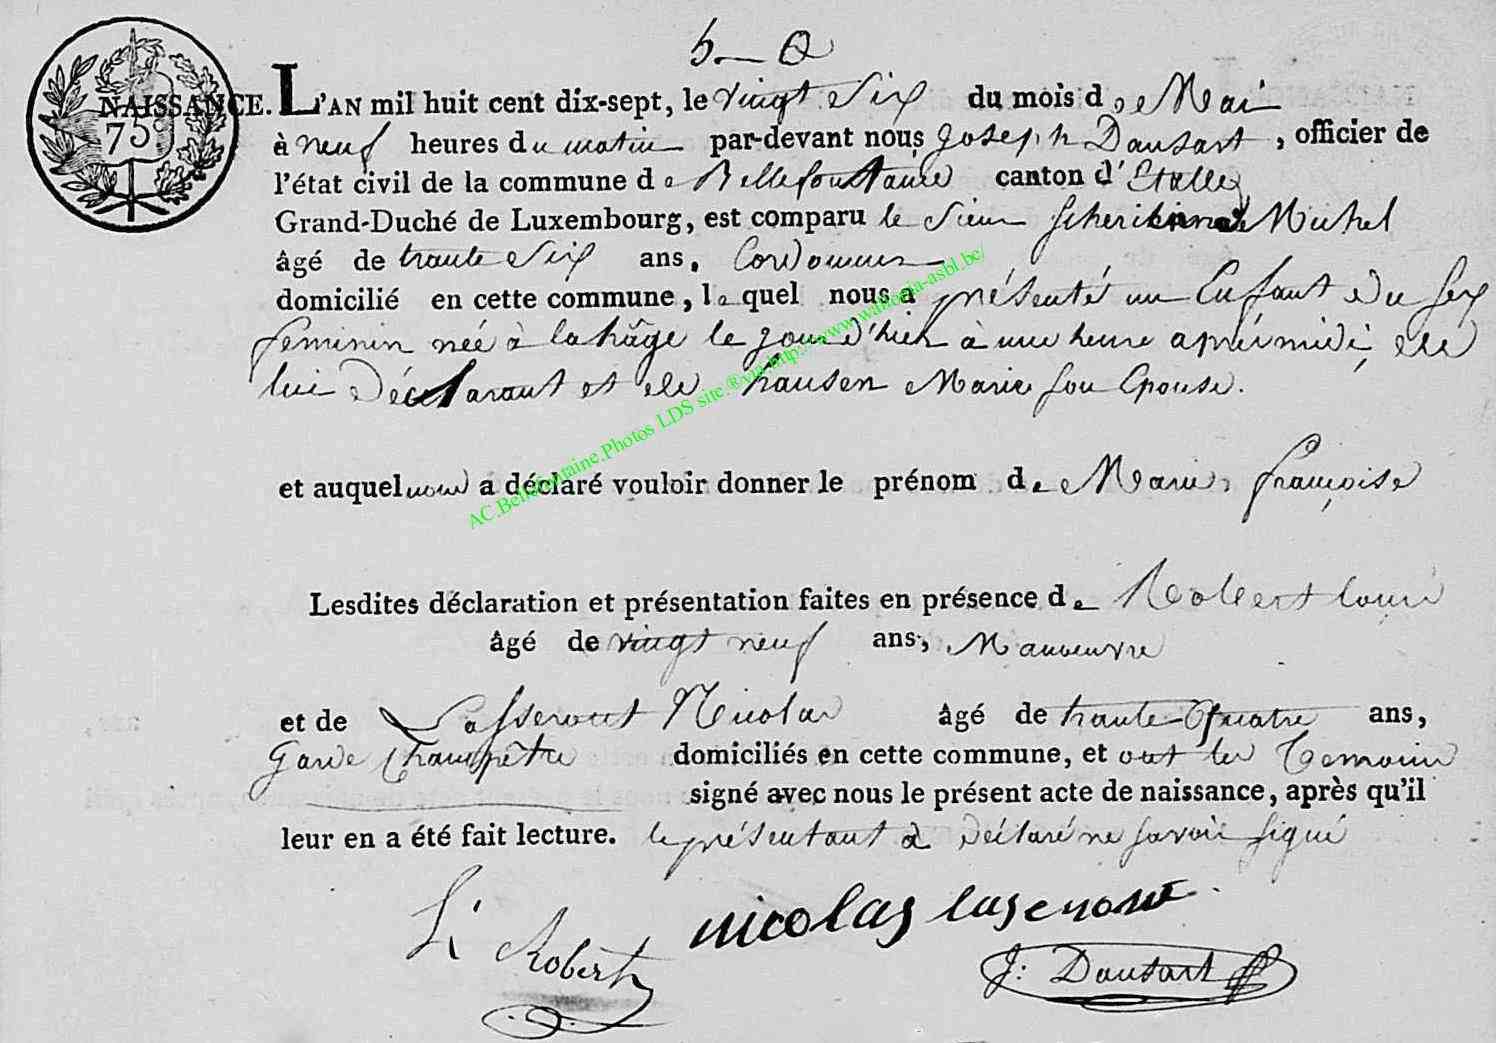 NAISSANCE. L'AN mil huit cent dix-sept, le vingt Six du mois de Mai
75
à neuf heures du matin par-devant nous Joseph Dausart, officier de
l'état civil de la commune de Bellefontaine canton d'Etalle
Grand-Duché de Luxembourg, est comparu le Sieur Michel
âgé de trente Six ans, Cordonnier
domicilié en cette commune, lequel nous a présentés un Enfant du sex
feminin née à lahâge le jour d'hier à une heure aprés midi, de
lui Déclarant et de hausen Marie son Epouse.
et auquel nous a déclaré vouloir donner le prénom de Marie, françoise
Lesdites déclaration et présentation faites en présence de Robert louis
âgé de vingt neuf ans, Manoeuvre
et de Lasserout Nicolas âgé de trente-Quatre ans,
Garde Champêtre domiciliés en cette commune, et ont les Temoins
signé avec nous le présent acte de naissance, après qu'il
leur en a été fait lecture. le présentant a Déclaré ne savoir signé
L. Robert nicolas laserout
J: Dausart
AC.Bellefontaine.Photos LDS site.®via http://www.wallonia-asbl.be/